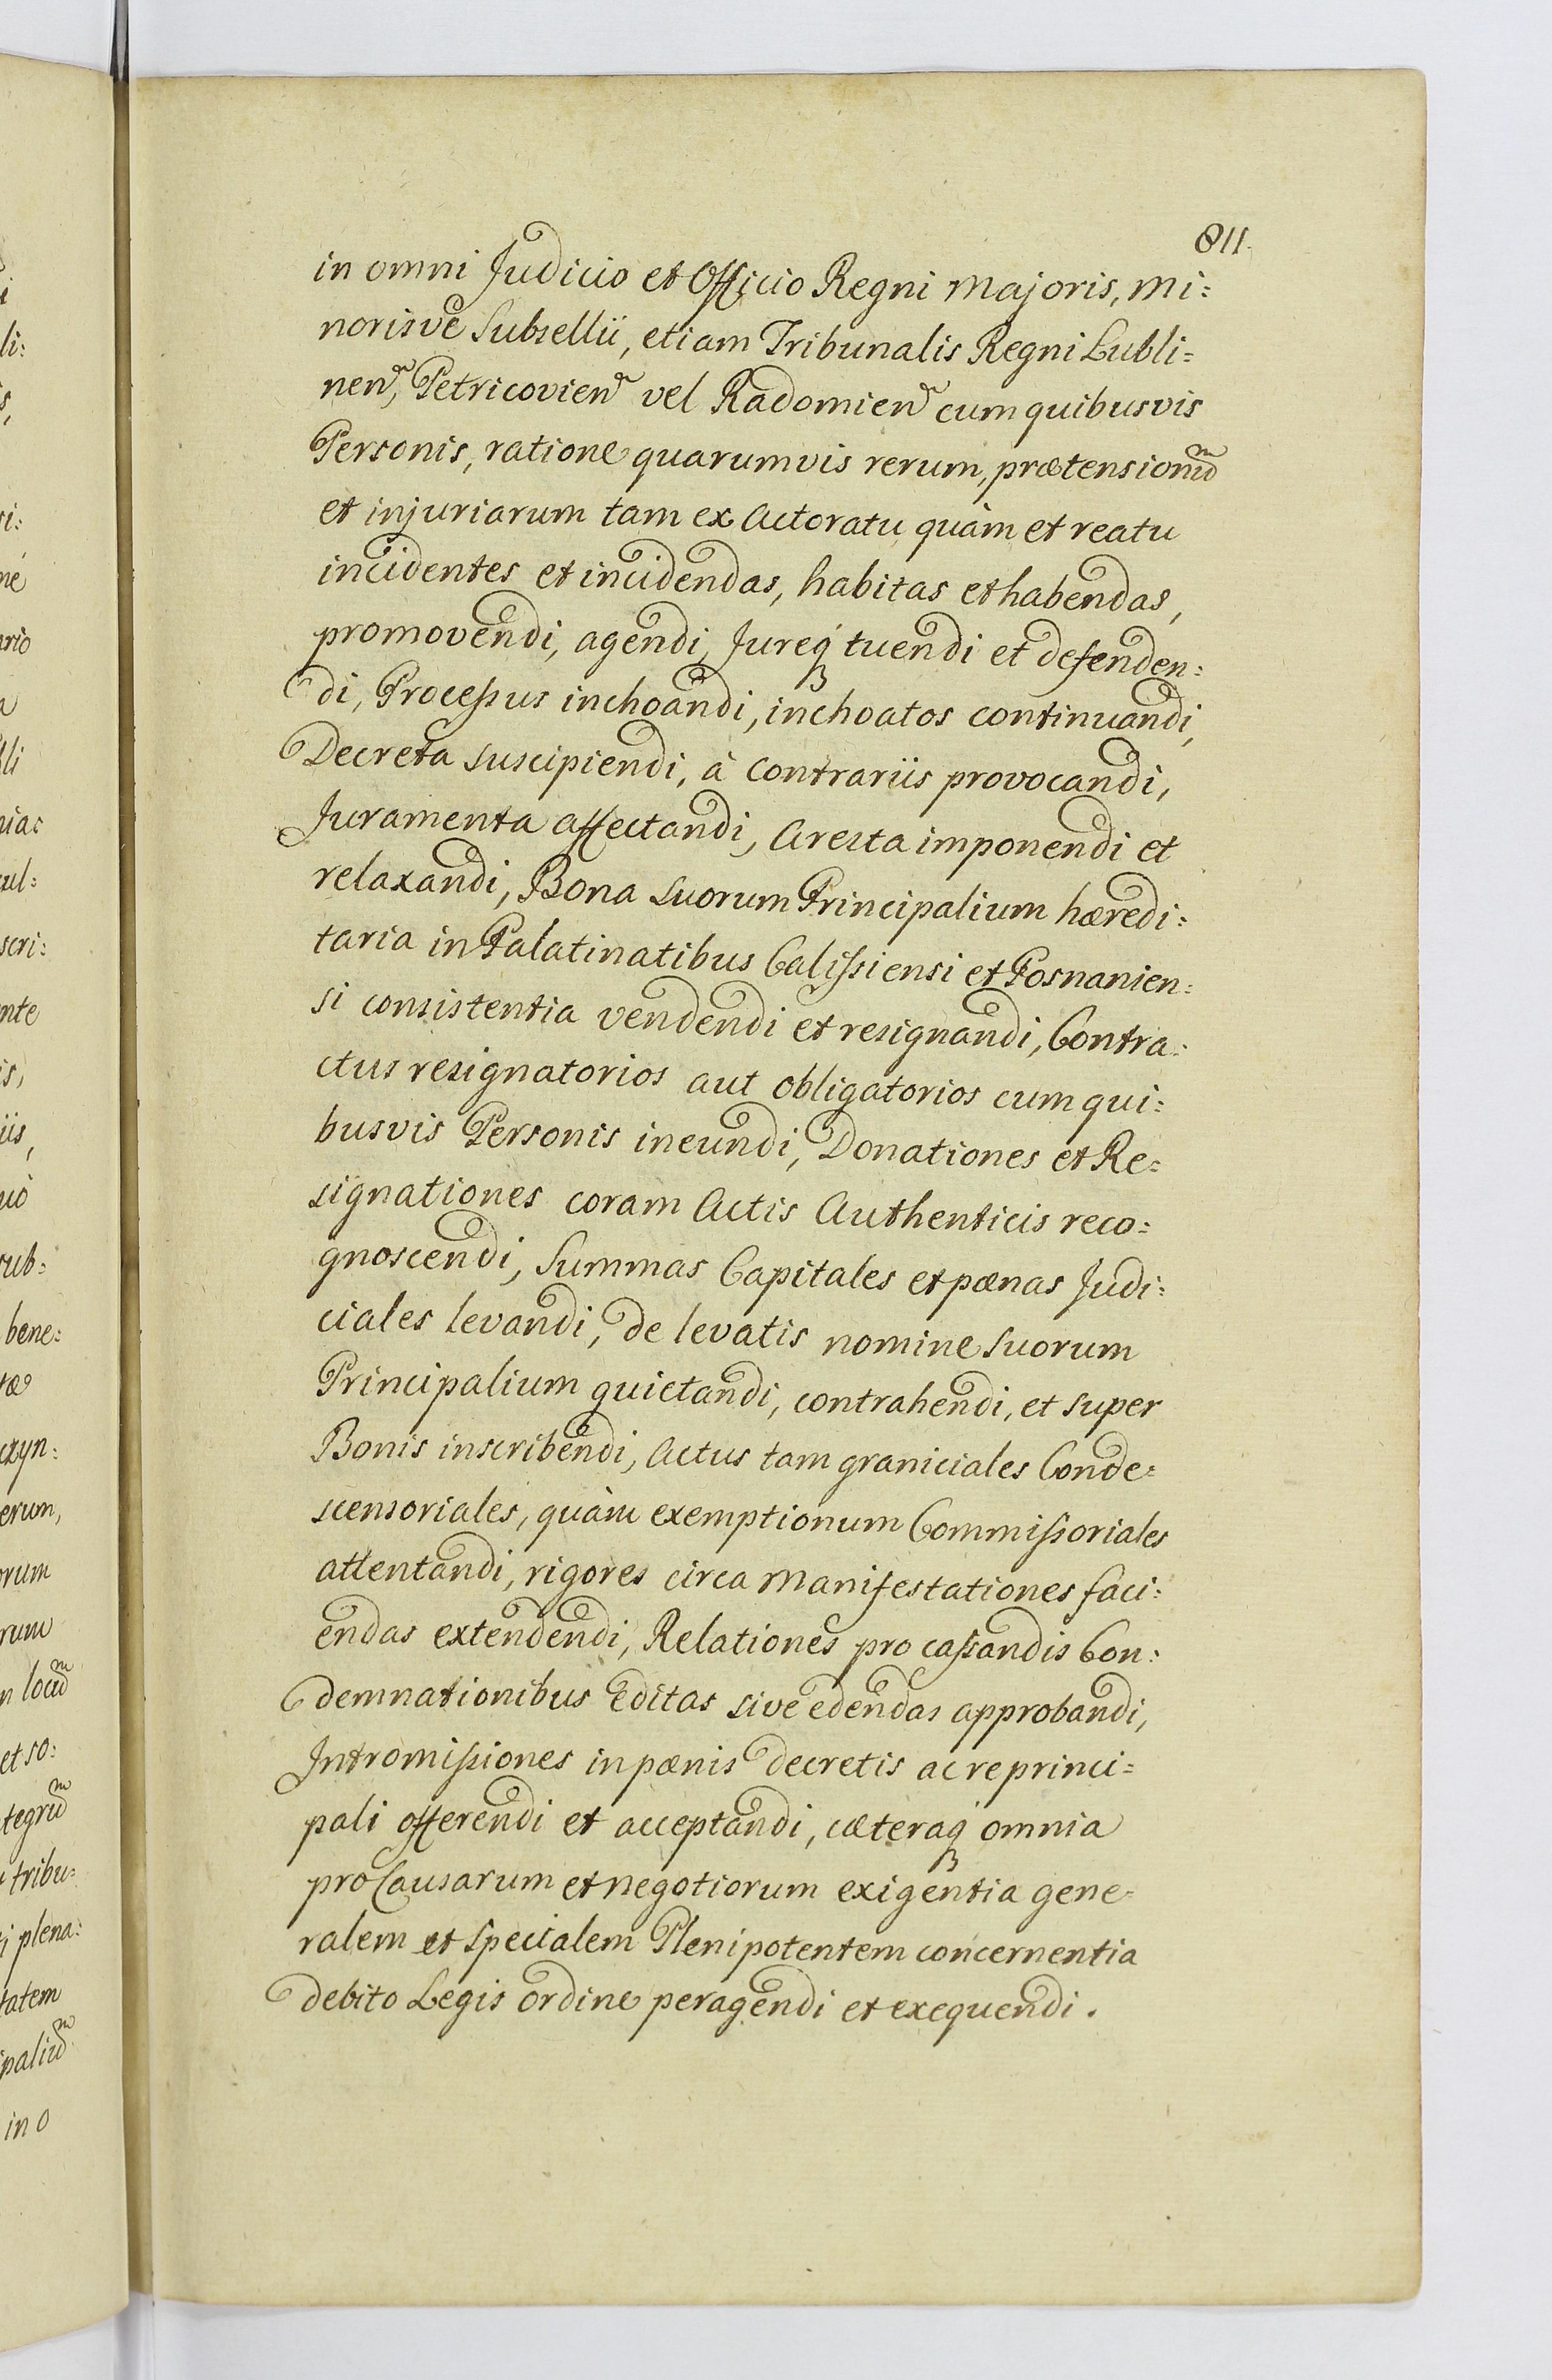 811.
in omni Judicio et Officio Regni Majoris, Mi:
norisve Subsellii, etiam Tribunalis Regni Lubli=
nen̄, Petricovien̄ vel Radomien̄ cum quibusvis
Personis, ratione quarumvis rerum, prætensionũ
et injuriarum tam ex Actoratu quàm et reatu
incidentes et incidendas, habitas et habendas,
promovendi, agendi, Jureq́ tuendi et defenden:
di, Processus inchoandi, inchoatos continuandi,
Decreta suscipiendi, à Contrariis provocandi,
Juramenta affectandi, Aresta imponendi et
relaxandi, Bona Suorum Principalium hæredi:
taria in Palatinatibus Calissiensi et Posnanien:
si consistentia vendendi et resignandi, Contra:
ctus resignatorios aut obligatorios cum qui:
busvis Personis ineundi, Donationes et Re=
signationes coram Actis Authenticis reco:
gnoscendi, Summas Capitales et pœnas Judi:
ciales levandi, de levatis nomine Suorum
Principalium quietandi, contrahendi, et super
Bonis inscribendi, Actus tam graniciales Conde=
scensoriales, quàm exemptionum Commissoriales
attentandi, rigores circa Manifestationes faci:
endas extendendi, Relationes pro cassandis Con:
demnationibus Editas sive edendas approbandi,
Intromissiones in pœnis decretis ac re princi=
pali offerendi et acceptandi, cæteraq́ omnia
pro Causarum et negotiorum exigentia gene=
ralem et Specialem Plenipotentem concernentia
debito Legis ordine peragendi et exequendi.